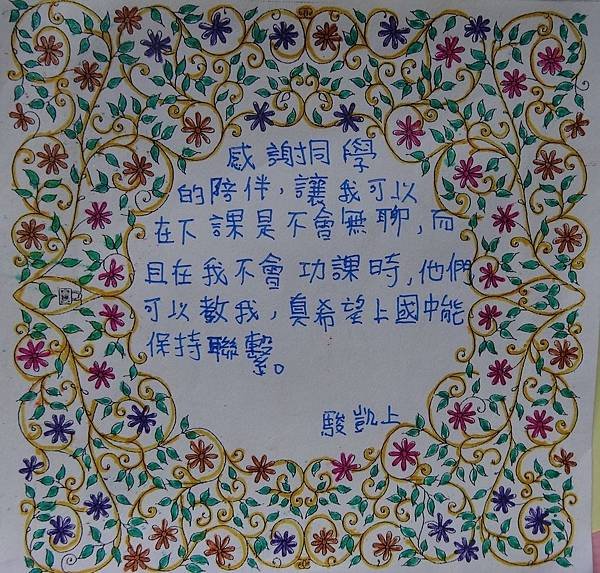 感謝同學
的陪伴，讓我可以
在下課是不會無聊，而
且在我不會功課時，他們
可以教我，真希望上國中能
保持聯繫。
駿凱上